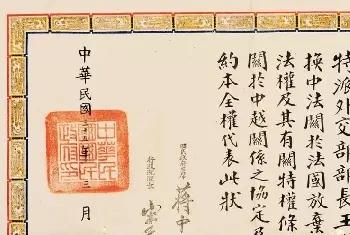 特派外交部部長王
換中法關於法國放棄
法權及其有關特權條
關於中越關係之協定及
約本全權代表此狀
國民政府主席
蔣中
行政院院長
宋子
中華民國三十五年三月